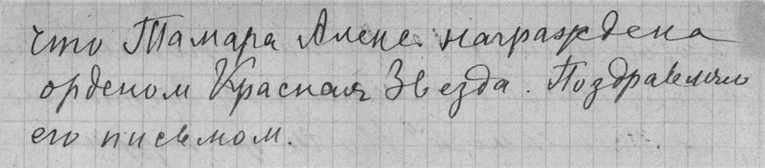 что Тамара Алекс. награждена
орденом Красная Звезда. Поздравляю
его письмом.